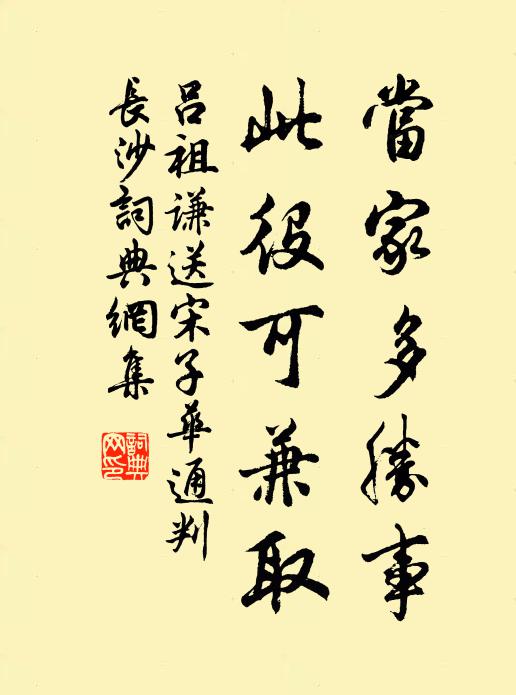 當家多勝事
此役可兼取
吕祖谦送宋子華通判
長沙詞典網集
詞典
网印